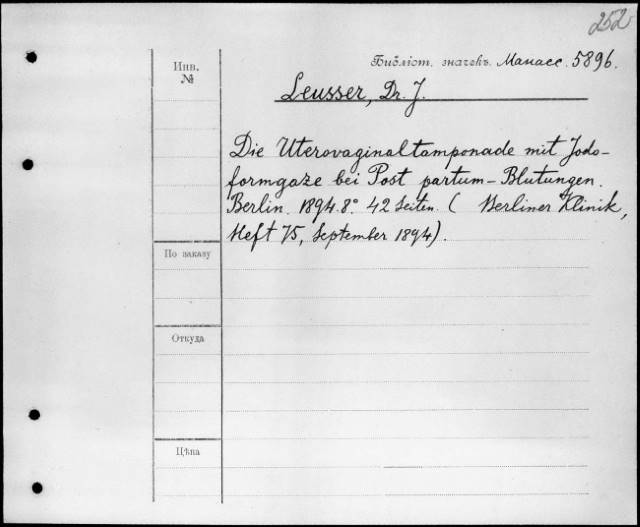 252
Библіот. значекъ. Манасс. 5896.
Инв.
№
Leusser, Dr. J.
Die Uterovaginaltamponade mit Jodo-
formgaze bei Post partum-Blutungen.
Berlin. 1894. 8° 42 Seiten. ( Berliner Klinik,
Heft 75, September 1894).
По заказу
Откуда
Цѣна